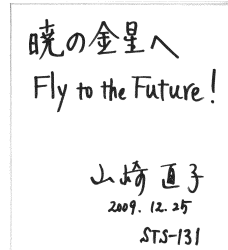 暁の金星へ
Fly to the Future!
山崎 直子
2009. 12. 25
STS-131